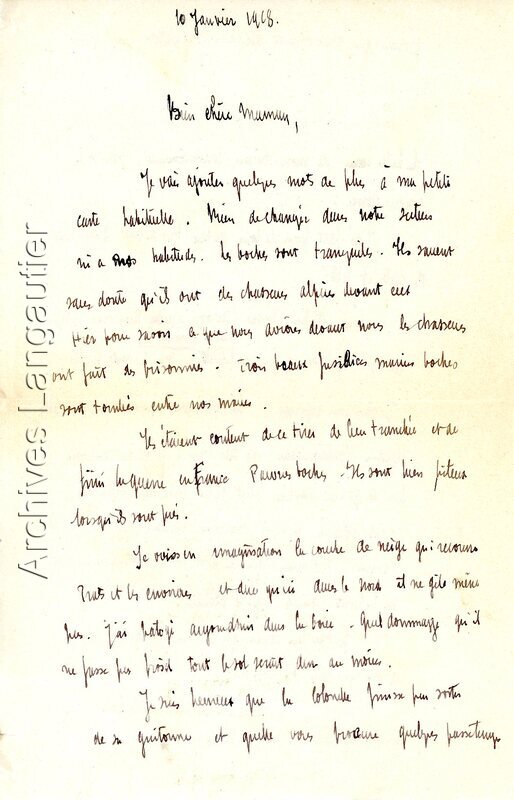 10 Janvier 1918.
Bien chère Maman,
Je vais ajouter quelques mots de plus à ma petite
carte habituelle. Rien de changée dans notre secteur
ni a nos habitudes. Les boches sont tranquiles. Ils savent
sans doute qu'ils ont des chasseurs alpins devant eux
Hier pour savoir ce que nous avions devant nous les chasseurs
ont fait des prisonniers. Trois beaux fusiliers marins boches
sont tombés entre nos mains.
Ils étaient content de ce tirer de leur tranchée et de
finir la guerre en France Pauvres boches. Ils sont bien piteux
lorsqu'ils sont pris.
Je vois en imagination la couche de neige qui recouvre
et les environs et dire qu'ici dans le Nord il ne gèle même
pas. J'ai patogé aujourdhui dans la boue. Quel dommage qu'il
ne fasse pas froid tout le sol serait dur au moins.
Je suis heureux que la colonelle finisse par sortir
de sa guitoune et quelle vous procure quelques passetemps
Archives Langautier